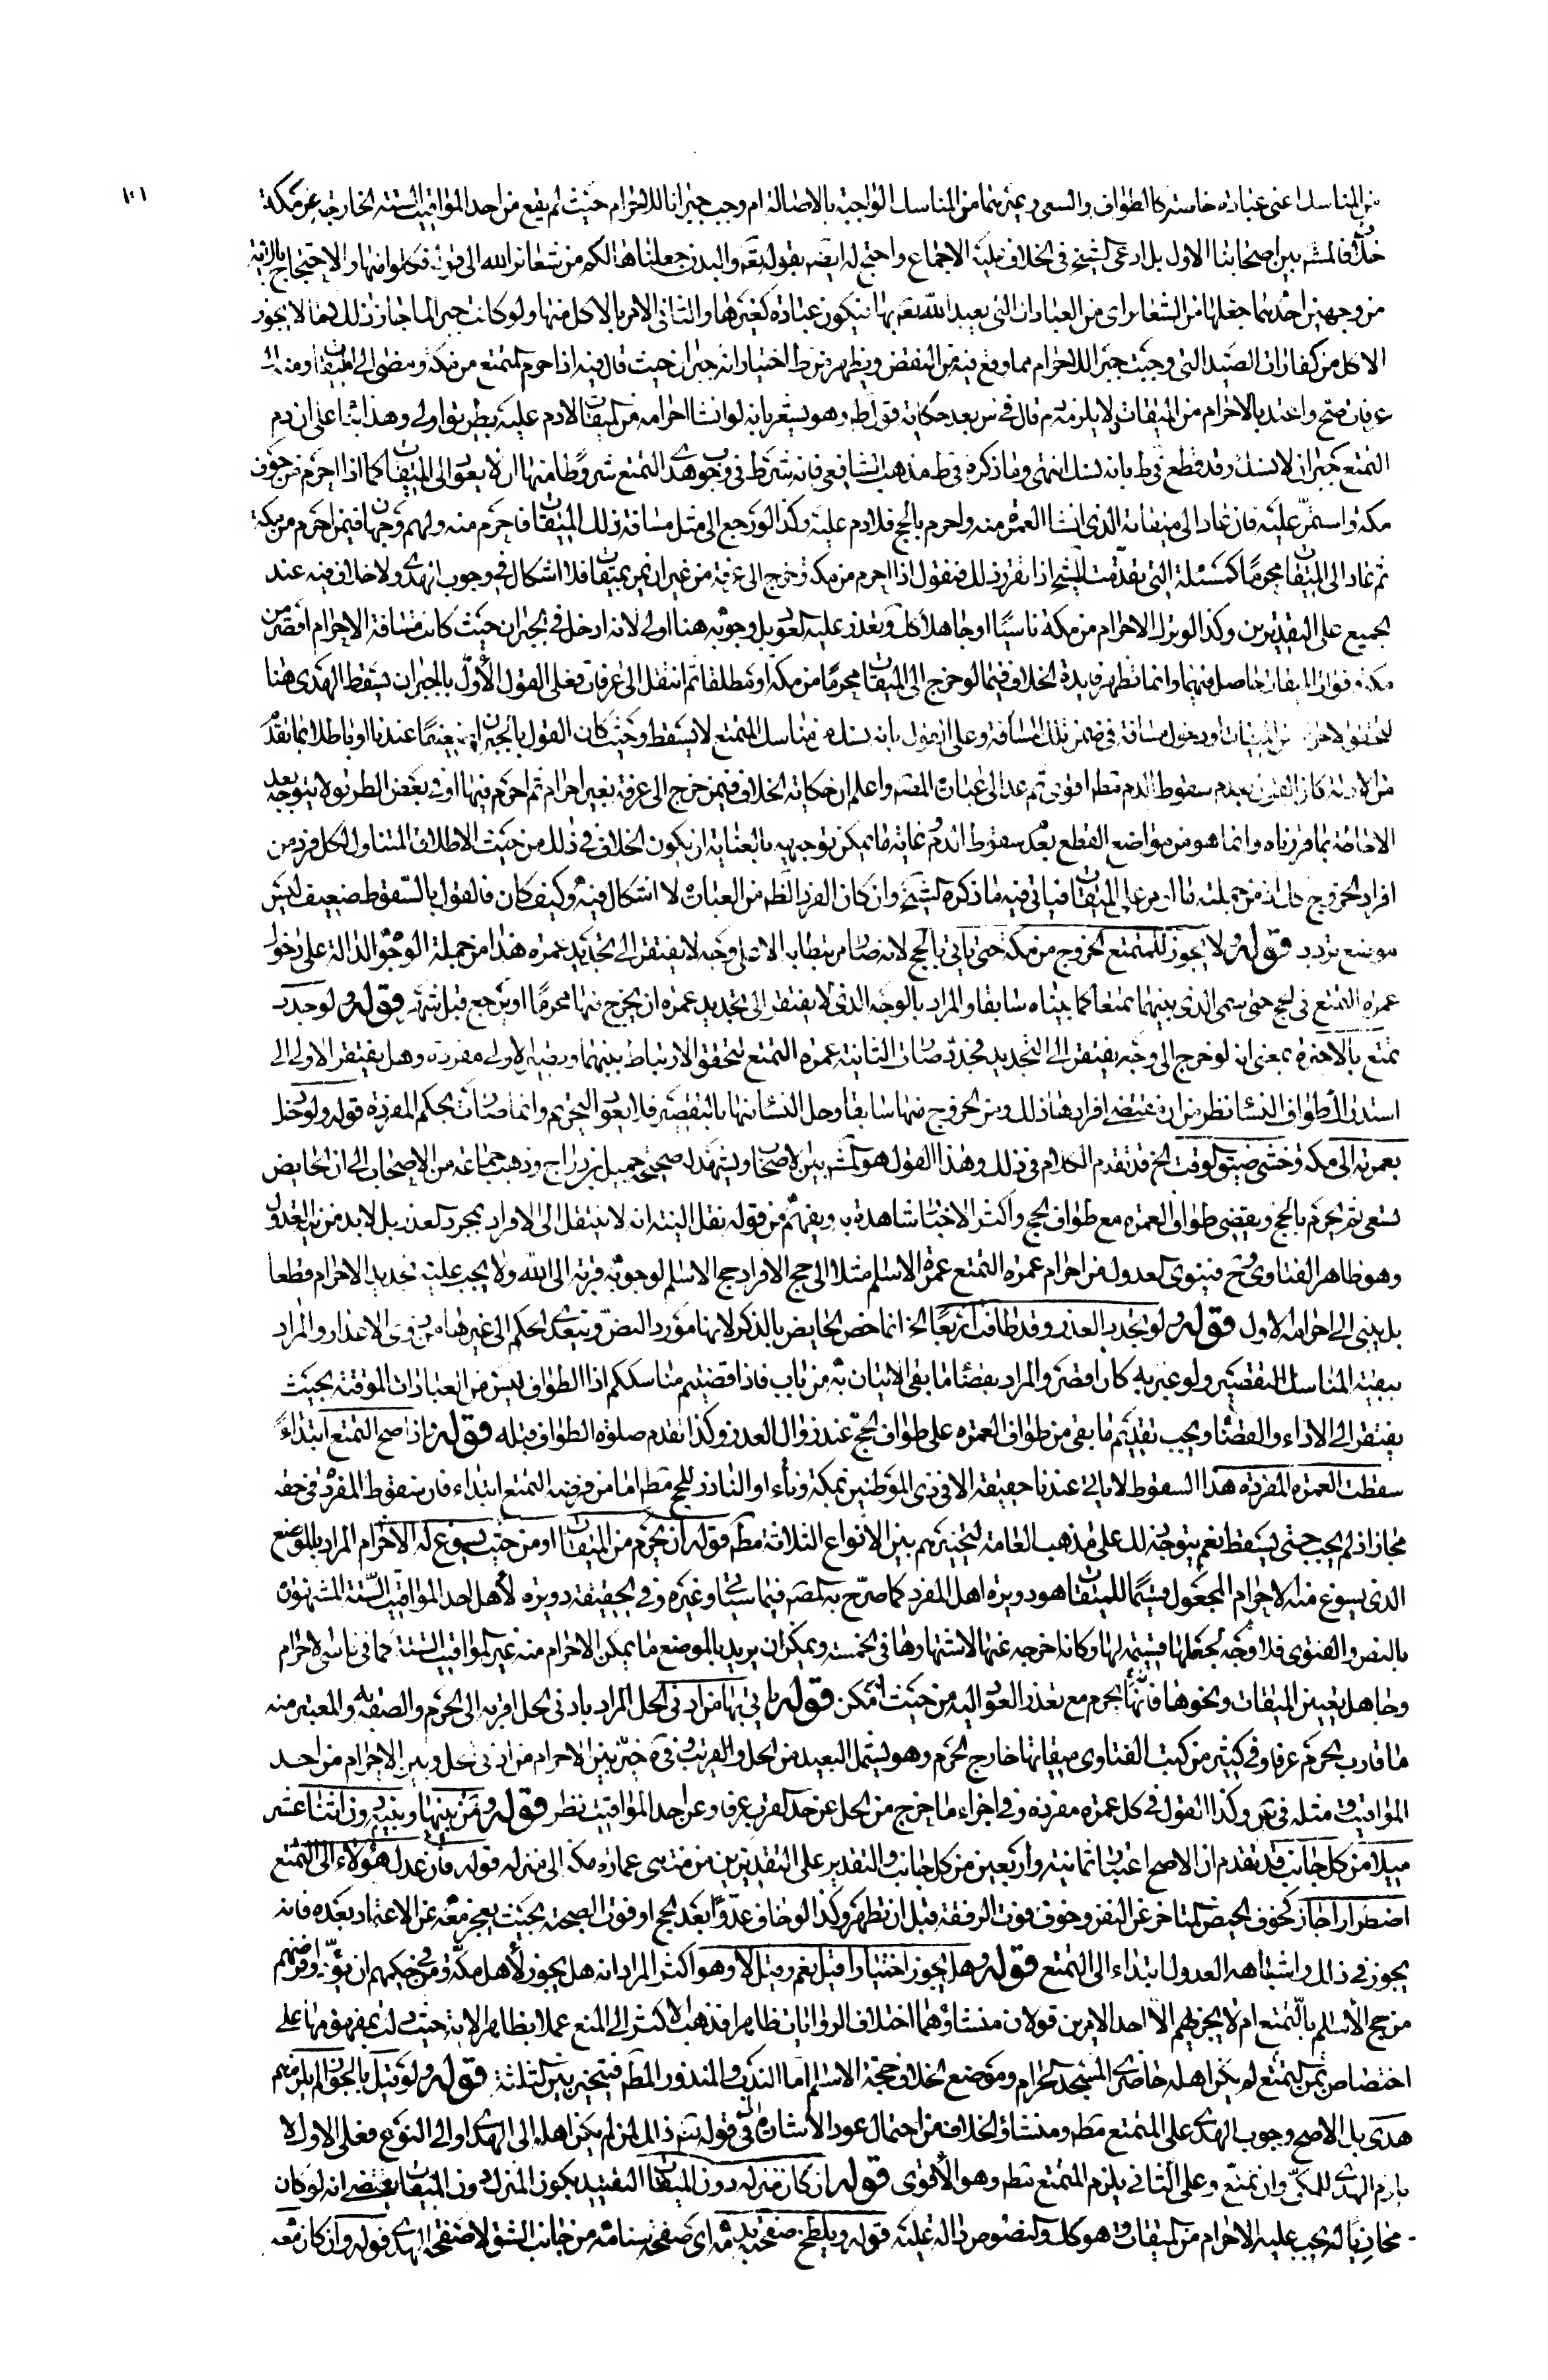 ١٠١
من المناسك اعنى عبادة خاصة كالطواف والسعى وغيرهما من المناسك الواجبة بالاصالة ام وجب جبرانا للاحرام حيث لم يقع من احد المواقيت الستة الخارجة عن مكة
خلاف المشهور بين اصحابنا الاول بل ادعى الشيخ فى الخلاف عليه الاجماع واحتج له ايضا بقوله تع والبدن جعلناها لكم من شعائر الله الى قوله فكلوا منها والاحتجاج بالاية
من وجهين احدهما جعلها من الشعائر اى من العبادات التى يعبد الله تع بها فيكون عبادة كغيرها والثانى الامر بالاكل منها ولو كانت جبرا لما جاز ذلك كما لا يجوز
الاكل من كفارات الصيد التى وجبت جبرا للاحرام مما وقع فيه من النقص ويظهر من ط اختيار انه جبران حيث قال فيه اذا احرم المتمتع من مكة ومضى الى الميقات ومنه الى
عرفات صح واعتد بالاحرام من الميقات ولا يلزمه دم قال فى س بعد حكاية قول ط وهو يشعر بانه لو انشا احرامه من الميقات لا دم عليه بطريق اولى وهذا بناء على ان دم
التمتع جبران لا نسك وقد قطع فى ط بانه نسك انتهى وما ذكره فى ط مذهب الشافعى فانه شرط فى وجوب هدى التمتع شروطا منها ان لا يعود الى الميقات كما اذا احرم من جوف
مكة واستمر عليه فان عاد الى ميقاته الذى انشا العمرة منه واحرم بالحج فلا دم عليه وكذا لو رجع الى مثل مسافة ذلك الميقات فاحرم منه ولهم وجهان فيمن احرم من مكة
ثم عاد الى الميقات محرما كمسئلة التى تقدمت للشيخ اذا تقرر ذلك فنقول اذا احرم من مكة وخرج الى عرفة من غير ان يمر بميقات فلا اشكال فى وجوب الهدى ولا خلاف فيه عند
الجميع على التقديرين وكذا لو ترك الاحرام من مكة ناسيا او جاهلا كل وتعذر عليه العود بل وجوبه هنا اولى لانه ادخل فى الجبران حيث كانت مسافة الاحرام اقصر من
مكة وفوات الميقات حاصل فيهما وانما تظهر فايدة الخلاف فيما لو خرج الى الميقات محرما من مكة او مطلقا ثم انتقل الى عرفات فعلى القول الاول بالجبران يسقط الهدى هنا
لتحقق الاحرام من الميقات ودخول مسافة فى ضمن تلك المسافة وعلى القول بانه نسك من مناسك المتمتع لا يسقط وحيث كان القول بالجبران ضعيفا عندنا او باطلا بما تقدم
من الادلة كان القول بعدم سقوط الدم مط اقوى ثم عد الى عبارة المص واعلم ان حكاية الخلاف فيمن خرج الى عرفة بغير احرام ثم احرم فيها او فى بعض الطريق لا يتوجه بعد
الاحاطة بما قررناه وانما هو من مواضع القطع بعدم سقوط الدم غاية ما يمكن توجيهه بالعناية ان يكون الخلاف فى ذلك من حيث الاطلاق المتناول لكل فرد من
افراد الخروج فان من جملته ما لو مر على الميقات فياتى فيه ما ذكره الشيخ وان كان الفرد الظاهر من العبارة لا اشكال فيه وكيف كان فالقول بالسقوط ضعيف ليس
موضع تردد قوله ولا يجوز للمتمتع الخروج من مكة حتى ياتى بالحج لانه صار مرتبطا به الا على وجه لا يفتقر الى تجديد عمرة هذا من جملة الوجوه الدالة على دخول
عمرة التمتع فى الحج حتى سمى الذى بينهما تمتعا كما بيناه سابقا والمراد بالوجه الذى لا يفتقر الى تجديد عمرة ان يخرج منها محرما او يرجع قبل شهر قوله ولو جدد
تمتع بالاخيرة بمعنى انه لو خرج الى وجه يفتقر الى التجديد فجدد صارت الثانية عمرة التمتع لتحقق الارتباط بينهما وبقيت الاولى مفردة وهل يفتقر الاولى الى
استدراك طواف النسا نظر من ان مقتضى افرادها ذلك ومن الخروج منها سابقا وحل النسا منها بالتقصير فلا يعود التحريم وانما صارت بحكم المفردة قوله ولو دخل
بعمرته الى مكة وخشى ضيق الوقت الخ قد تقدم الكلام فى ذلك وهذا القول هو المشهور بين الاصحاب ويشهد له صحيح جميل بن دراج وذهب جماعة من الاصحاب الى ان الحايض
تسعى ثم تحرم بالحج وتقضى طواف العمرة مع طواف الحج واكثر الاخبار شاهدة به ويفهم من قوله نقل النية انه لا ينتقل الى الافراد بمجرد العذر بل لابد من نية العدول
وهو ظاهر الفتاوى فينوى العدول من احرام عمرة التمتع عمرة الاسلم مثلا الى حج الافراد حج الاسلم لوجوبه قربة الى الله ولا يجب عليه تجديد الاحرام قطعا
بل يبنى الى احرامه الاول قوله ولو تجدد العذر وقد طافت اربعا الخ انما خص الحايض بالذكر لانها مورد النص ويتعدى الحكم الى غيرها من ذوى الاعذار والمراد
ببقية المناسك التقصير ولو عبر به كان اقصر والمراد بقضاء ما بقى الاتيان به من باب فاذا قضيتم مناسككم اذ الطواف ليس من العبادات الموقتة بحيث
يفتقر الى الاداء والقضا ويجب تقديم ما بقى من طواف العمرة على طواف الحج عند زوال العذر وكذا تقدم صلوة الطواف قبله قوله واذا صح التمتع ابتداء
سقطت العمرة المفردة هذا السقوط لا ياتى عندنا حقيقة الا فى ذى الموطنين بمكة وناء او الناذر للحج مط اما من فرضه التمتع ابتداء فان سقوط المفردة فى حقه
مجاز اذ لم يجب حتى يسقط نعم يتوجه ذلك على مذهب العامة لتخييرهم بين الانواع الثلاثة مط قوله ان يحرم من الميقات او من حيث يسوغ له الاحرام المراد بالموضع
الذى يسوغ منه الاحرام المجعول قسيما للميقات هو دويرة اهل المفرد كما صرح به المص فيما سيأتى وغيره وفى الحقيقة دويرة الاهل احد المواقيت الستة المشهورة
بالنص والفتوى فلا وجه لجعلها قسيمة لها وكانه اخرجه عنها لاشتهارها فى الخمسة ويمكن ان يريد بالموضع ما يمكن الاحرام منه غير المواقيت الستة كما فى ناسى الاحرام
وجاهل تعيين الميقات ونحوها فانه يحرم مع تعذر العود اليه من حيث امكن قوله ياتى بها من ادنى الحل المراد بادنى الحل اقربه الى الحرم والصقه به والمعتبر منه
ما قارب الحرم عرفا وفى كثير من كتب الفتاوى ميقاتها خارج الحرم وهو يشمل البعيد من الحل والقريب وفى كره خير بين الاحرام من ادنى الحل وبين الاحرام من احد
المواقيت ومثله فى س وكذا القول فى كل عمرة مفردة وفى اجزاء ما خرج من الحل عن حد القرب عرفا وعن احد المواقيت نظر قوله ومن بينها وبينه دون اثنا عشر
ميلا من كل جانب قد تقدم ان الاصح اعتبار ثمانية واربعين من كل جانب والتقدير على التقديرين من منتهى عمارة مكة الى منزله قوله فان عدل هؤلاء الى التمتع
اضطرارا جاز كخوف الحيض المتاخر عن النفر وخوف فوت الرفقة قبل ان تطهر وكذا لو خاف عدوا بعد الحج او فوت الصحبة بحيث يعجز معه عن الاعتماد بعده فانه
يجوز فى ذلك واشباهه العدول ابتداء الى التمتع قوله وهل يجوز اختيارا قيل نعم وقيل لا وهو اكثر المراد انه هل يجوز لاهل مكة ومن فى حكمهم ان يؤدوا فرضهم
من حج الاسلم بالتمتع ام لا يجزيهم الا احد الامرين قولان منشاؤهما اختلاف الروايات ظاهرا فذهب الاكثر الى المنع عملا بظاهر الاية حيث دلت بمفهومها على
اختصاص التمتع بمن لم يكن اهله حاضرى المسجد الحرام وموضع الخلاف حجة الاسلم اما الندب والمنذور المط فيتخير بين الثلثة قوله ولو قيل بالجواز لم يلزمهم
هدى بل الاصح وجوب الهدى على المتمتع مط ومنشاؤ الخلاف من احتمال عود الاشارة فى قوله تع ذلك لمن لم يكن اهله الى الهدى او الى التمتع فعلى الاول لا
يلزم الهدى للمكى وان تمتع وعلى الثانى يلزم المتمتع مط وهو الاقوى قوله ان كان منزله دون الميقات التقييد بكون المنزل دون الميقات يقتضى انه لو كان
محاذيا له يجب عليه الاحرام من الميقات وهو كك والنصوص دالة عليه قوله ويلطخ صفحته بدمه اى صفحة سنامه من جانب الشق لا صفحة الهدى قوله وان كان معه